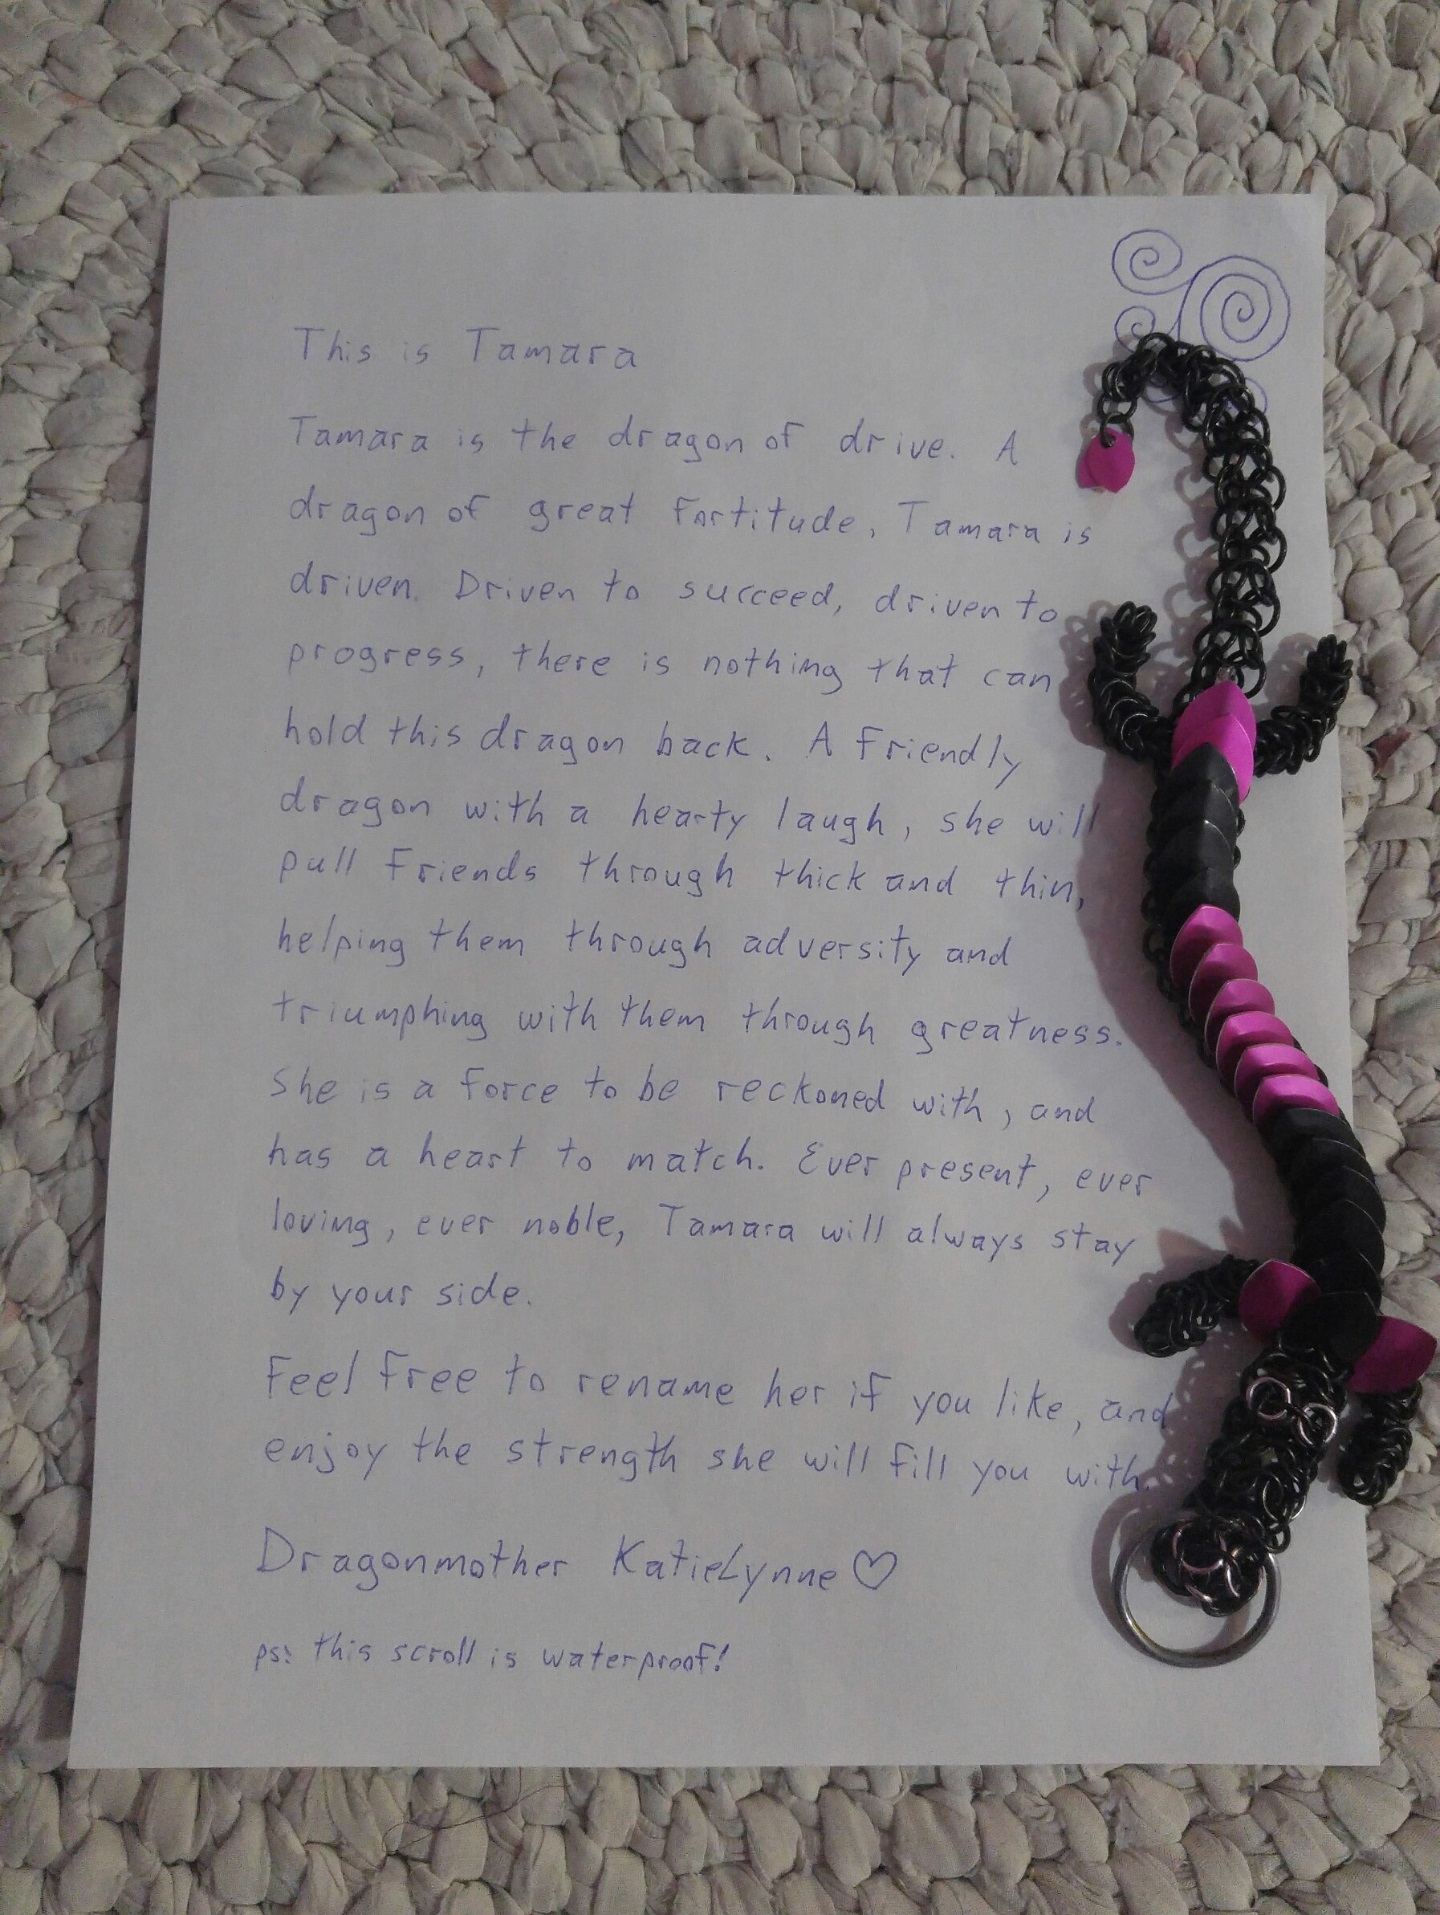 This is Tamara
Tamara is the dragon of drive. A
dragon of great fortitude, Tamara is
driven. Driven to succeed, driven to
progress, there is nothing that can
hold this dragon back. A friendly
dragon with a hearty laugh, she will
pull friends through thick and thin,
helping them through adversity and
triumphing with them through greatness.
She is a force to be reckoned with, and
has a heart to match. Ever present, ever
loving, ever noble, Tamara will always stay
by your side.
Feel free to rename her if you like, and
enjoy the strength she will fill you with.
Dragonmother KatieLynne♡
ps: this scroll is waterproof!